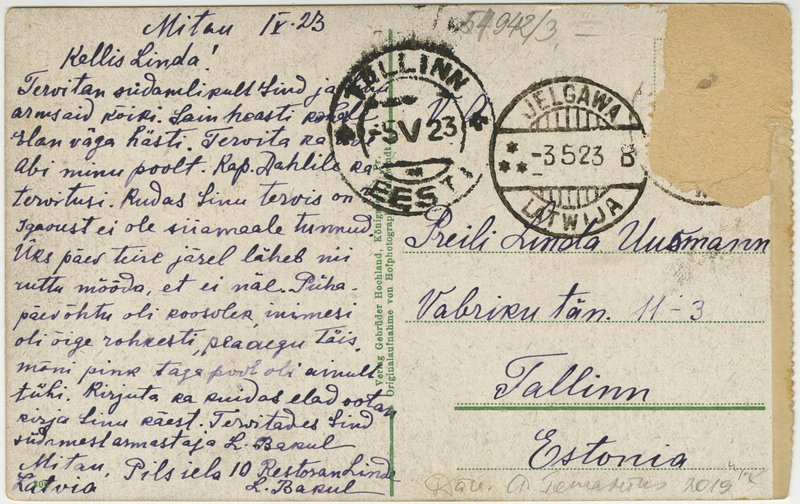 Mitau IV. 23
54942/3
Kellis Linda!
Tervitan südamlikult Sind ja
armsaid kõiki. Sain heasti
Elan väga hästi. Tervita ka
abi minu poolt. Kap. Dahlile ka
tervitusi. Kudas Sinu tervis on
Igavust ei ole siiamaale tunnud.
Üks päev teise järel läheb nii
ruttu mööda, et ei näe. Püha-
päev õhtu oli koosolek, inimesi
oli õige rohkesti, peaaegu täis,
mõni pink taga pool oli ainult
tühi. Kirjuta ka kuidas elad ootan
kirja Sinu käest. Tervitades Sind
südamest armastaja L. Bakul
Mitau, Pils iela 10 Restoran Linde
Latvia L. Bakul
TALLINN
-5 V 23
EESTI
JELGAWA
-3 5 23 B
LATWIJA
Verlag Gebrüder Hochland, Königsberg Pr.
Originalaufnahme von Hofphotograph
Preili Linda Uusmann
Vabriku tän. 11-3
Tallinn
Estonia
2019